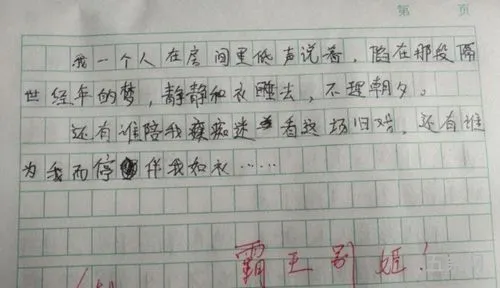 第 页
我一个人在房间里低声说着,陷在那段隔
世经年的梦,静静和衣睡去,不理朝夕。
还有谁陪我痴迷看这场旧戏,还有谁
为我而停伴我如衣……
霸王别姬!